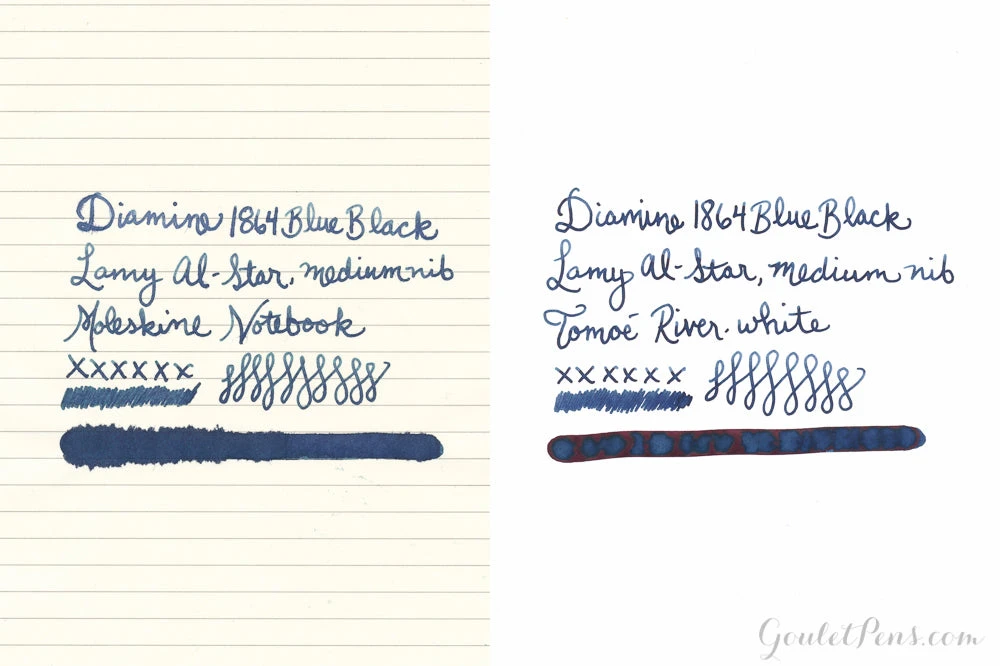 Diamine 1864 Blue Black
Lamy Al-Star, medium nib
Moleskine Notebook
xxxxxx
Diamine 1864 Blue Black
Lamy Al-Star, medium nib
Tomoé River. white
xxxxxx
GouletPens.com